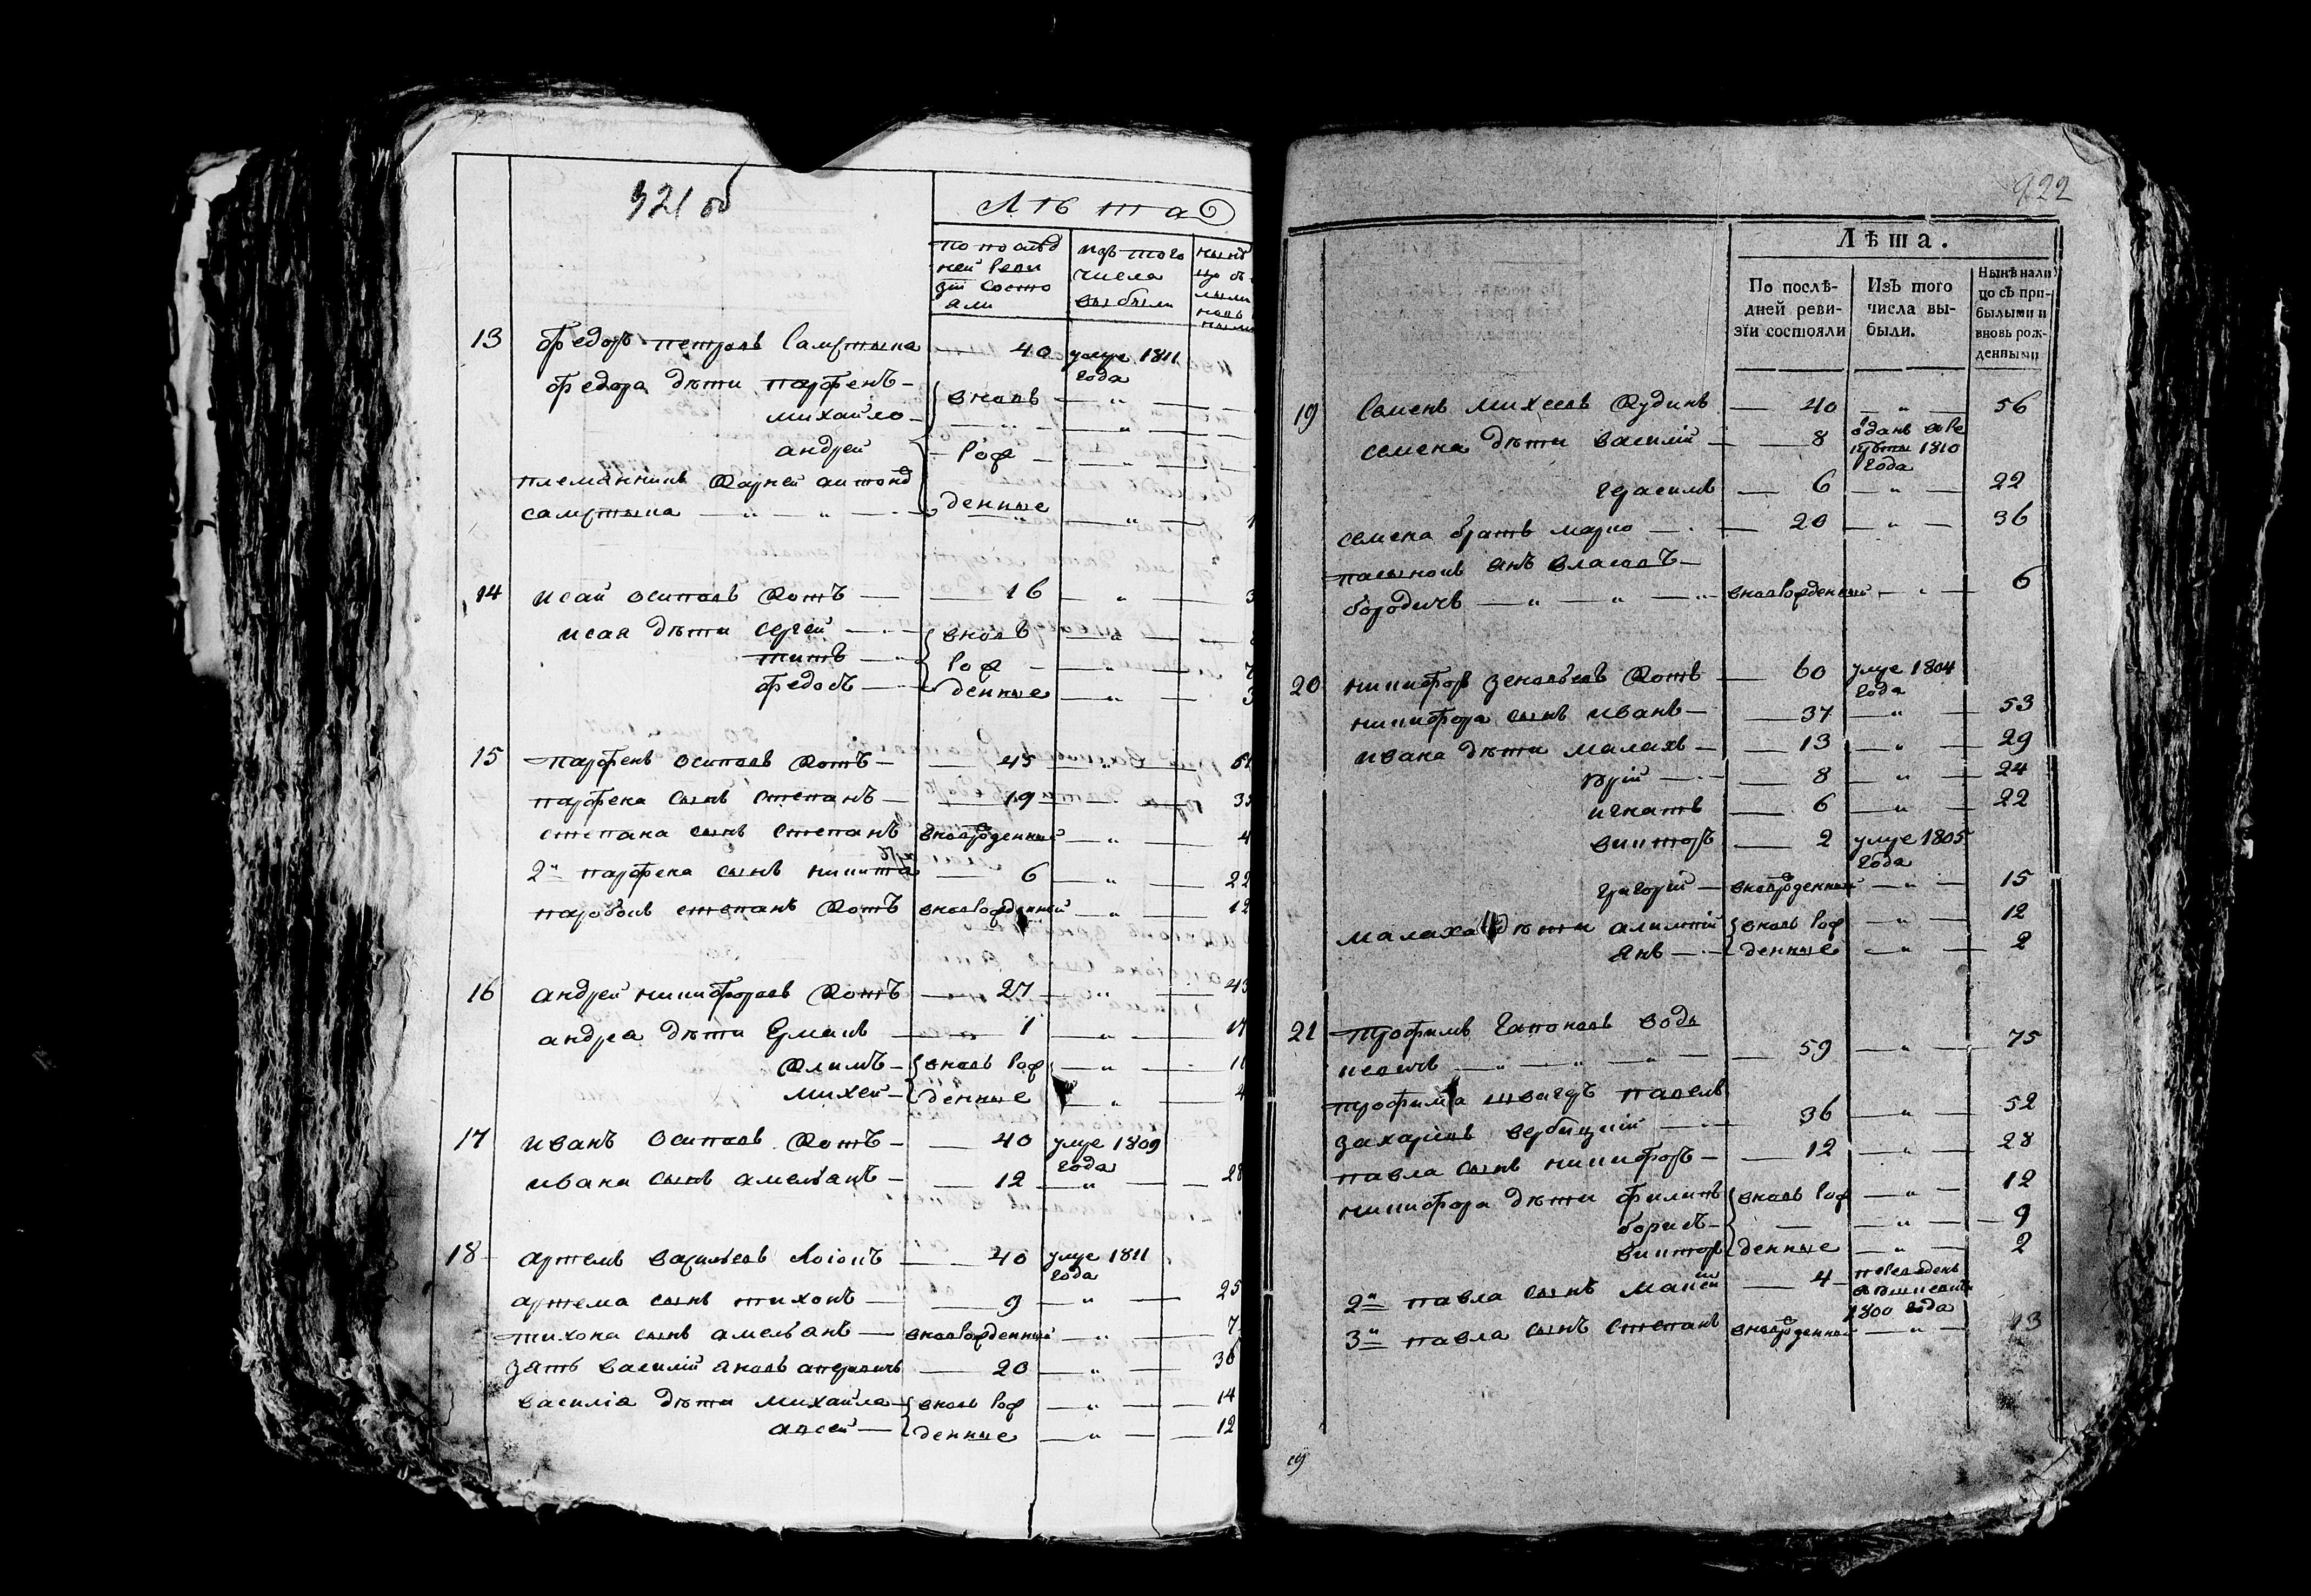 321 об
Лѣта
по послѣд изъ того нынѣ
ней реви числа
зіи состо выбыли
яли
13 Федоръ Петровъ — 40 умре 1811
года
Федора дѣти Парфенъ — вновь — " —
Михайло — — " —
Андрей — рож — " —
племянникъ Карней
— " — " — денные — " —
14 Исай Осиповъ Котъ — 16 — " —
Исая дѣти Сергей — вновь — " —
Титъ — рож — " — 7
Федосъ — денные — " — 3
15 Парфенъ Осиповъ Котъ — 45 — " —
Парфена сынъ Степанъ — 19 — " —
Степана сынъ Степанъ вноврожденный — " — 4
2й Парфена сынъ Никита — 6 — " — 22
Степанъ Котъ вноврожденный — " — 12
16 Андрей Никифоровъ Котъ — 27 — " — 43
Андрея дѣти Ермакъ — 1 — " — 17
Климъ — вновь рож — " —
Михей — денные — " — 4
17 Иванъ Осиповъ Котъ — 40 умре 1809
года
Ивана сынъ Амельянъ — 12 — " — 28
18 Артемъ Васильевъ — 40 умре 1811
года
Артема сынъ Тихонъ — 9 — " — 25
Тихона сынъ Амельянъ — вноврожденный — " — 7
зять Василій Яновъ — 20 — " — 36
Василія дѣти Михайла — вновь рож — " — 14
Авсей — денные — " — 12
922
Лѣта.
По послѣ- Изъ того Нынѣ нали
дней реви- числа вы- цо съ при-
зіи состояли были. былыми и
вновь рож-
денными
19 Семенъ Михеевъ Кудинъ — 40 — " — 56
Семена дѣти Василій — 8 отданъ в ре
круты 1810
года
Герасимъ — 6 — " — 22
Семена братъ Марко — 20 — " — 36
пасынокъ Янъ Власовъ —
Бородичъ — " — " — вноврожденный — " — 6
20 Никифоръ Зеновьевъ Котъ — 60 умре 1804
года
Никифора сынъ Иванъ — 37 — " — 53
Ивана дѣти Малахъ — 13 — " — 29
Юрій — 8 — " — 24
Игнатъ — 6 — " — 22
Викторъ — 2 умре 1805
года
Григорій — вноврожденный — " — 15
Малаха дѣти вновь рож — " — 12
Янъ — денные — " — 2
21 Трофимъ Гапоновъ Водь
— " — " — " — 59 — " — 75
Трофима швагръ Павелъ
Захаринъ Вербицкій — 36 — " — 52
Павла сынъ Никифоръ — 12 — " — 28
Никифора дѣти Филипъ вновь рож — " — 12
Борисъ — — " — 9
Викторъ денные — " — 2
2й Павла сынъ — 4 переведенъ
1800 года
3й Павла сынъ Степанъ вноврожденный — " — 13